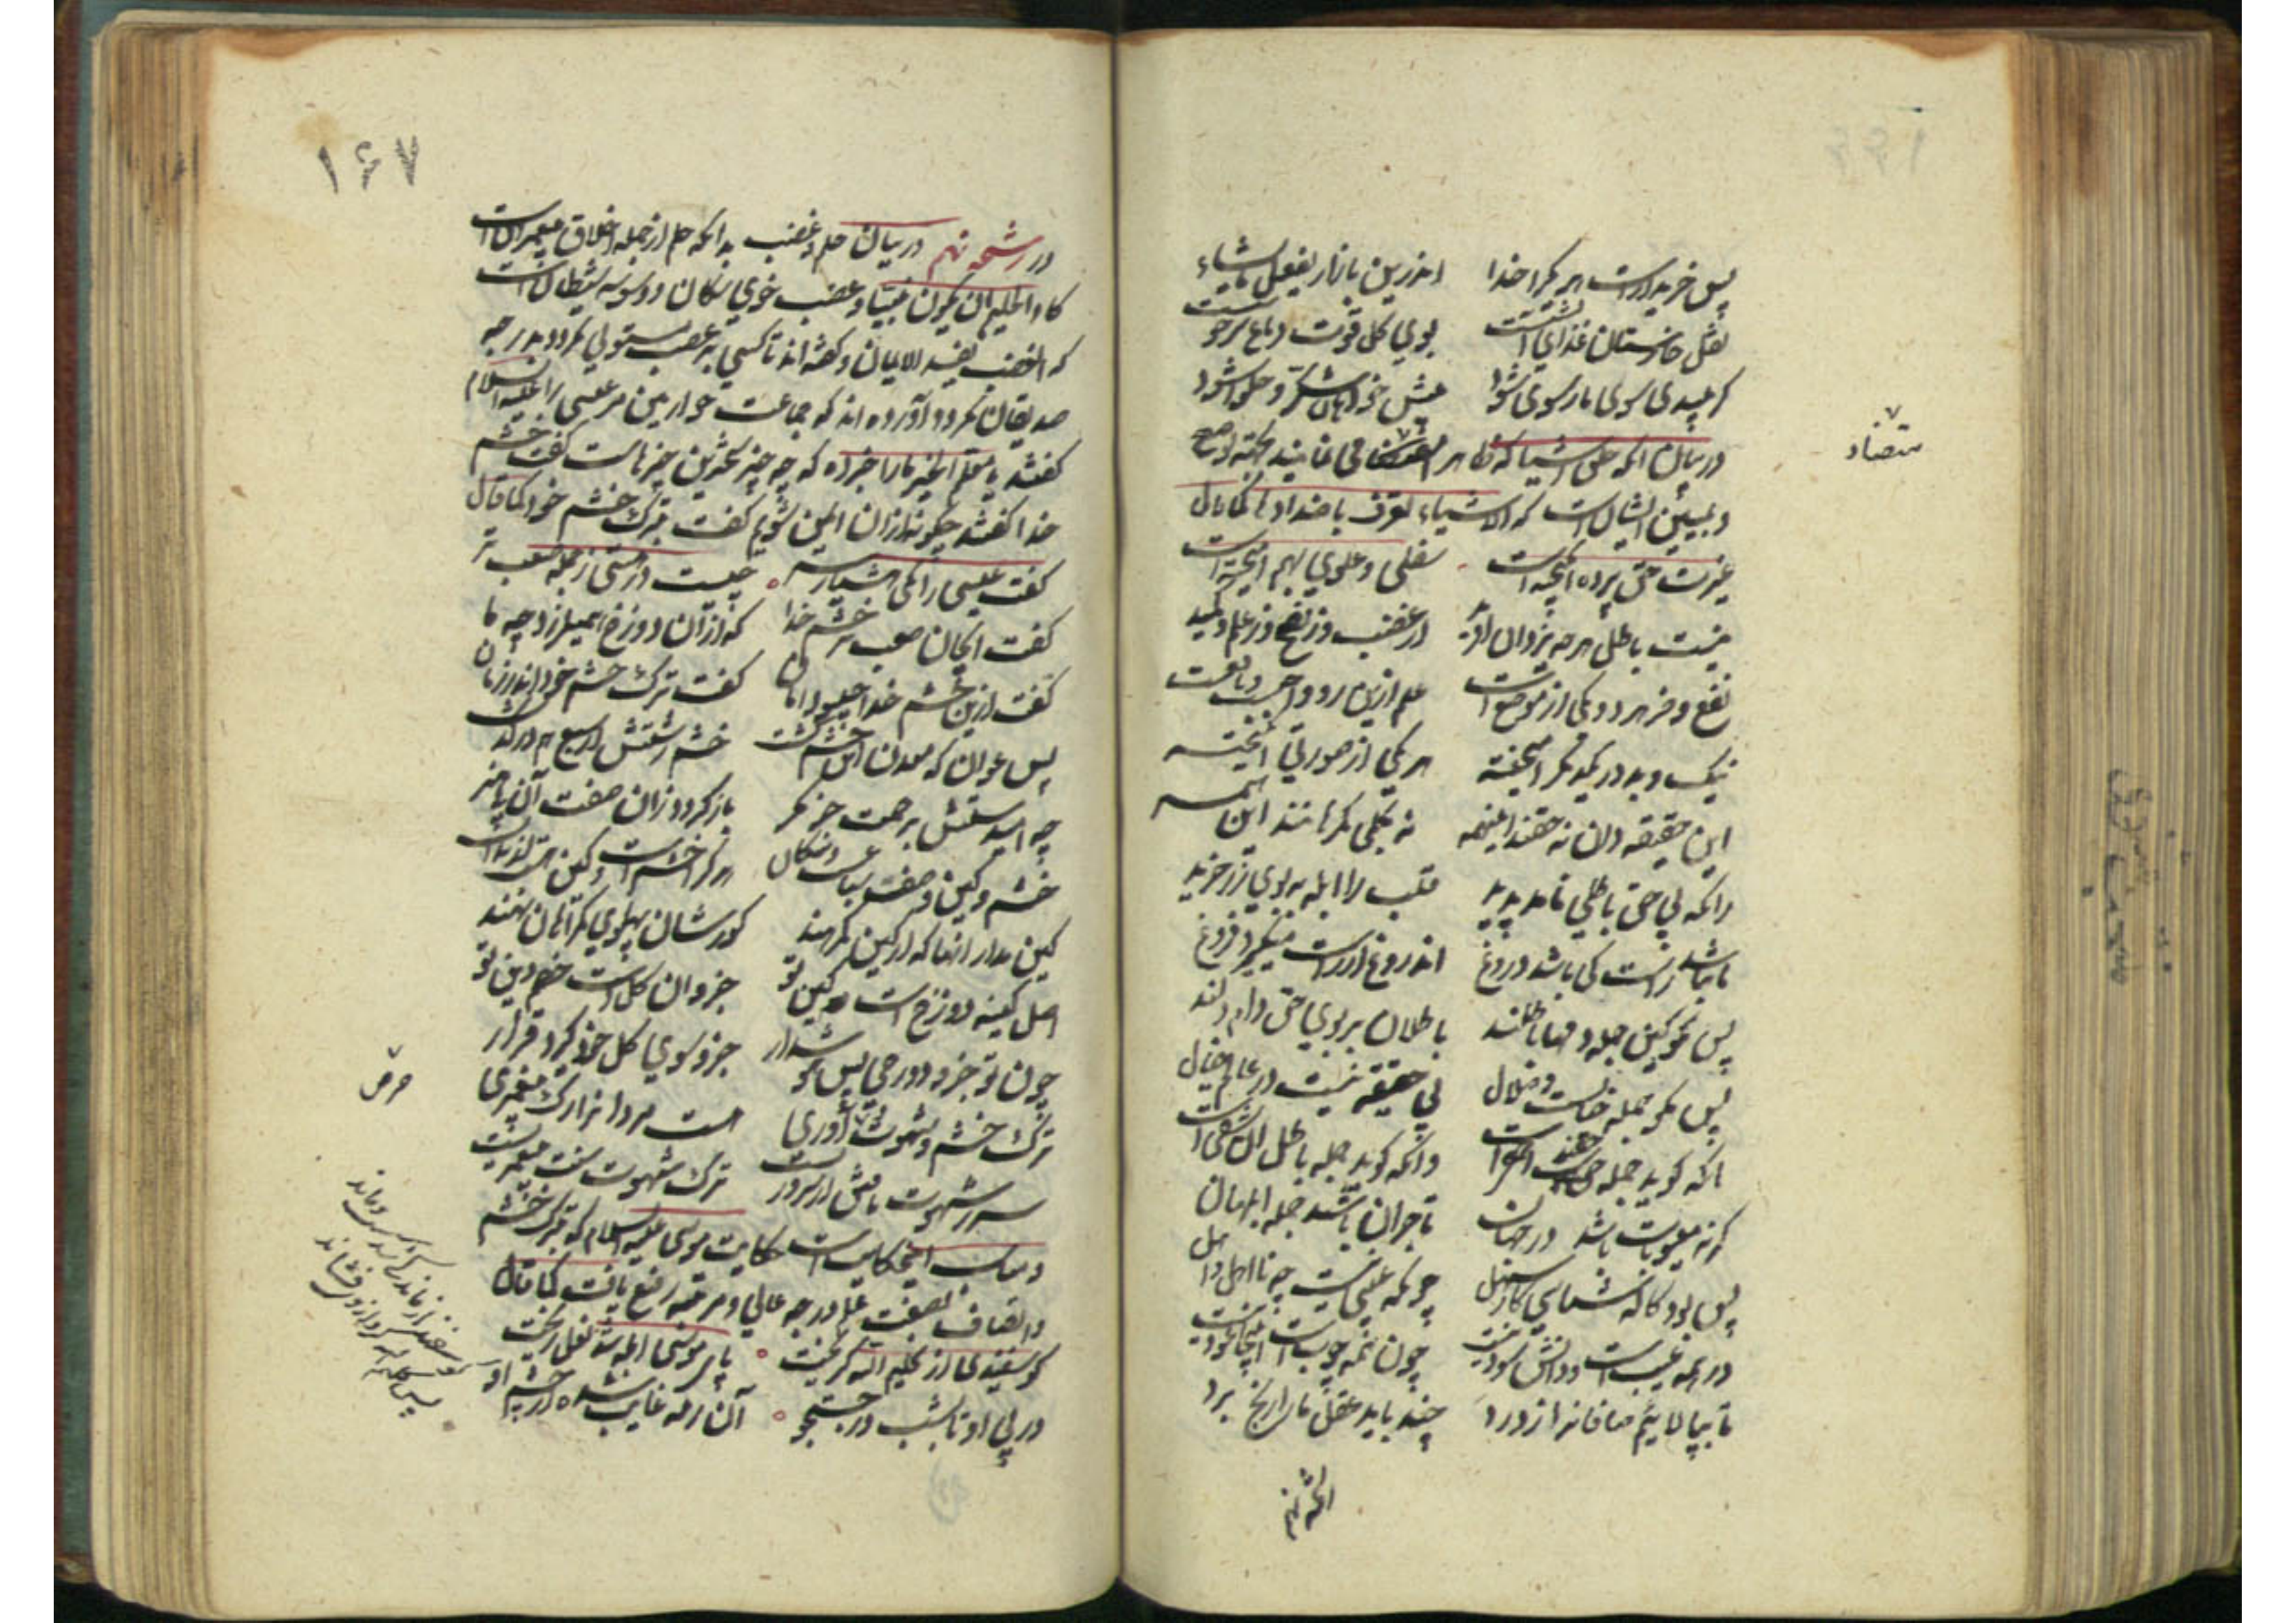 پس خریدارست هر یکرا خدا اندرین بازار یفعل مایشاء
نقل خارستان غذای آتشست بوی کل قوت دماغ سرخوشست
در بیان آنکه
و تبیین ایشان است که الاشیاء تعرف باضدادها کما قال
غیرت حق پرده انکیخته است سفلی و علوی بهم آمیخته است
نیست باطل هرچه یزدان آفرید از غضب وز نصح وز علم و مکید
نفع و ضر هر یکی از موضع است علم ازین رو واجبست و نافعست
نیک و بد در یکدکر آمیخته هر یکی از صورتی انکیخته
این حقیقه دان نه حقند اینهمه نه بکلی کمرهانند این همه
زانکه بی حق باطلی ناید پدید قلب را ابله به بوی زر خرید
تا نباشد راست کی باشد دروغ آن دروغ از راست میکیرد فروغ
پس مکو کین جمله دمها باطلند باطلان بر بوی حق دام دلند
پس مکو جمله خیالست و ضلال بی حقیقه نیست در عالم خیال
آنکه کوید جمله حقند احمقیست وانکه کوید جمله باطل آن شقیست
کر نه معیوبات باشد در جهان تاجران باشند جمله ابلهان
پس بود کاله شناسی کار سهل چونکه عیبی نیست چه نااهل و اهل
ور همه عیب است دانش سود نیست چون همه چوبست اینجا عود نیست
تا بپالاییم صافان را ز درد چند باید عقل ما را رنج برد
متضاد
۱۶۷
در رشحه نهم در بیان حلم و غضب بدانکه حلم از جمله اخلاق پیغمبران است
کاد الحلیم ان یکون نبیا و غضب خوی سکان و وسوسه شیطان است
که الغضب یفسد الایمان و کفته اند تا کسی بر غضب مستولی نکردد بدرجه
صدیقان نکردد و آورده اند که جماعت حوارییین مر عیسی را علیه السلام
کفتند یا معلم الخیر ما را خبر ده که چه چیز سخترین چیزهاست کفت خشم
خدا کفتند چکونه از آن ایمن شویم کفت بترک خشم خود کما قال
کفت عیسی را یکی هشیار سر چیست در هستی ز جمله صعب تر
کفت ای جان صعب تر خشم خدا که از آن دوزخ همی لرزد چو ما
کفت ازین خشم خدا چبود امان کفت ترک خشم خود اندر زمان
پس عوان که معدن این خشم کشت خشم زشتش از سبع هم در کذشت
چه امیدستش برحمت جز مکر باز کردد زان صفت آن بی هنر
خشم و کین وصف سباع و سکان
کین مدار آنها که از کین کمرهند کورشان پهلوی کمراهان نهند
اصل کینه دوزخ است و کین تو جزو آن کل است خصم دین تو
چون تو جزو دوزخی پس هوش دار جزو سوی کل خود کیرد قرار
ترک خشم و شهوت و حرص آوری هست مردی و رک پیغمبری
ترک شهوت سنت پیغمبریست
حکایت موسی علیه السلام که بترک خشم
و اتصاف بصفت حلم درجه عالی و مرتبه رفیع یافت کما قال
کوسفندی از کلیم الله کریخت پای موسی آبله شد نعل ریخت
در پی او تا بشب در جستجو آن رمه غایب شده از چشم او
حرص
کوسفند از ماندکی شد سست و ماند
پس کلیم الله کرد از وی فشاند